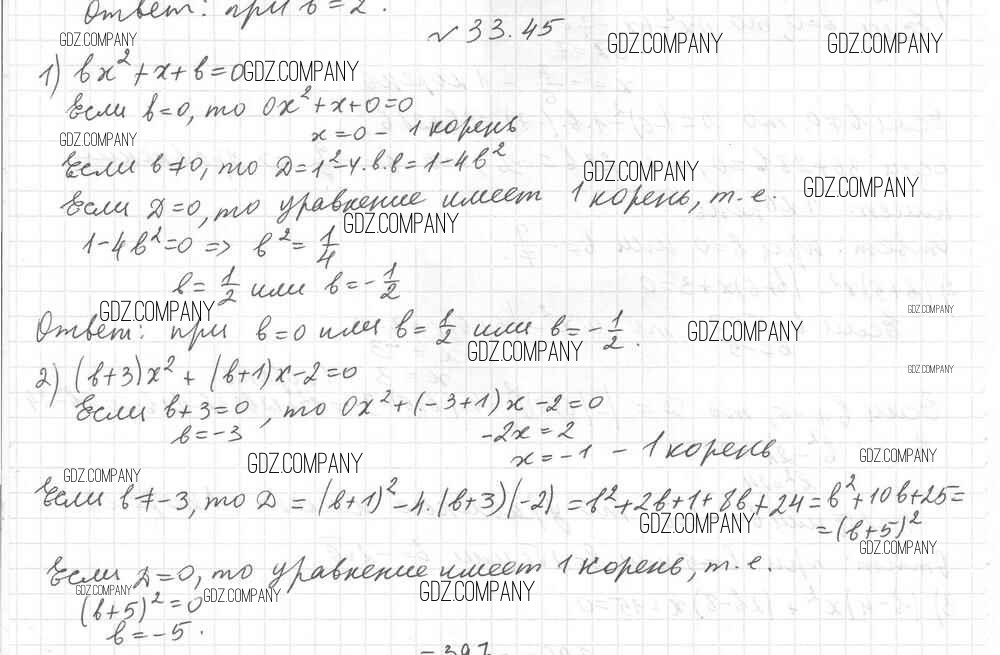 Ответ: при b = 2.
№ 33.45
GDZ.COMPANY GDZ.COMPANY GDZ.COMPANY
1) bx² + x + b = 0 GDZ.COMPANY
Если b=0, то 0x² + x + 0 = 0
x = 0 – 1 корень
GDZ.COMPANY
Если b ≠ 0, то D = 1² - 4·b·b = 1 - 4b²
GDZ.COMPANY GDZ.COMPANY
Если D=0, то уравнение имеет 1 корень, т.е.
GDZ.COMPANY
1 - 4b² = 0 => b² = 1/4
b = 1/2 или b = - 1/2
GDZ.COMPANY GDZ.COMPANY
Ответ: при b=0 или b = 1/2 или b = - 1/2.
GDZ.COMPANY GDZ.COMPANY
2) (b+3)x² + (b+1)x - 2 = 0
GDZ.COMPANY
Если b+3=0, то 0x² + (-3+1)x - 2 = 0
b = -3 -2x = 2
x = -1 – 1 корень
GDZ.COMPANY GDZ.COMPANY GDZ.COMPANY
Если b ≠ -3, то D = (b+1)² - 4·(b+3)(-2) = b² + 2b + 1 + 8b + 24 = b² + 10b + 25 =
= (b+5)²
GDZ.COMPANY GDZ.COMPANY
Если D=0, то уравнение имеет 1 корень, т.е.
GDZ.COMPANY GDZ.COMPANY GDZ.COMPANY
(b+5)² = 0
b = -5.